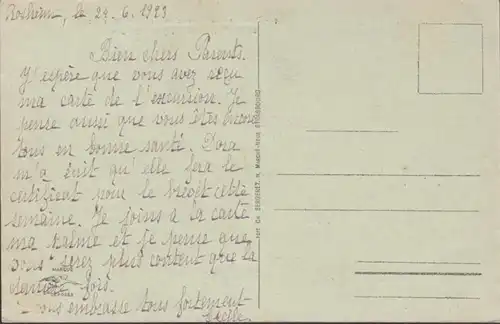 Rosheim, le 24. 6. 1923
Bien chers Parents.
J'espère que vous avez reçu
ma carte de l'excursion. Je
pense aussi que vous êtes encore
tous en bonne santé. Dora
m'a écrit qu'elle fera le
certificat pour le brevet cette
semaine. Je joins à la carte
ma palme et je pense que
vous serez plus content que la
dernière fois.
vous embrasse tous fortement